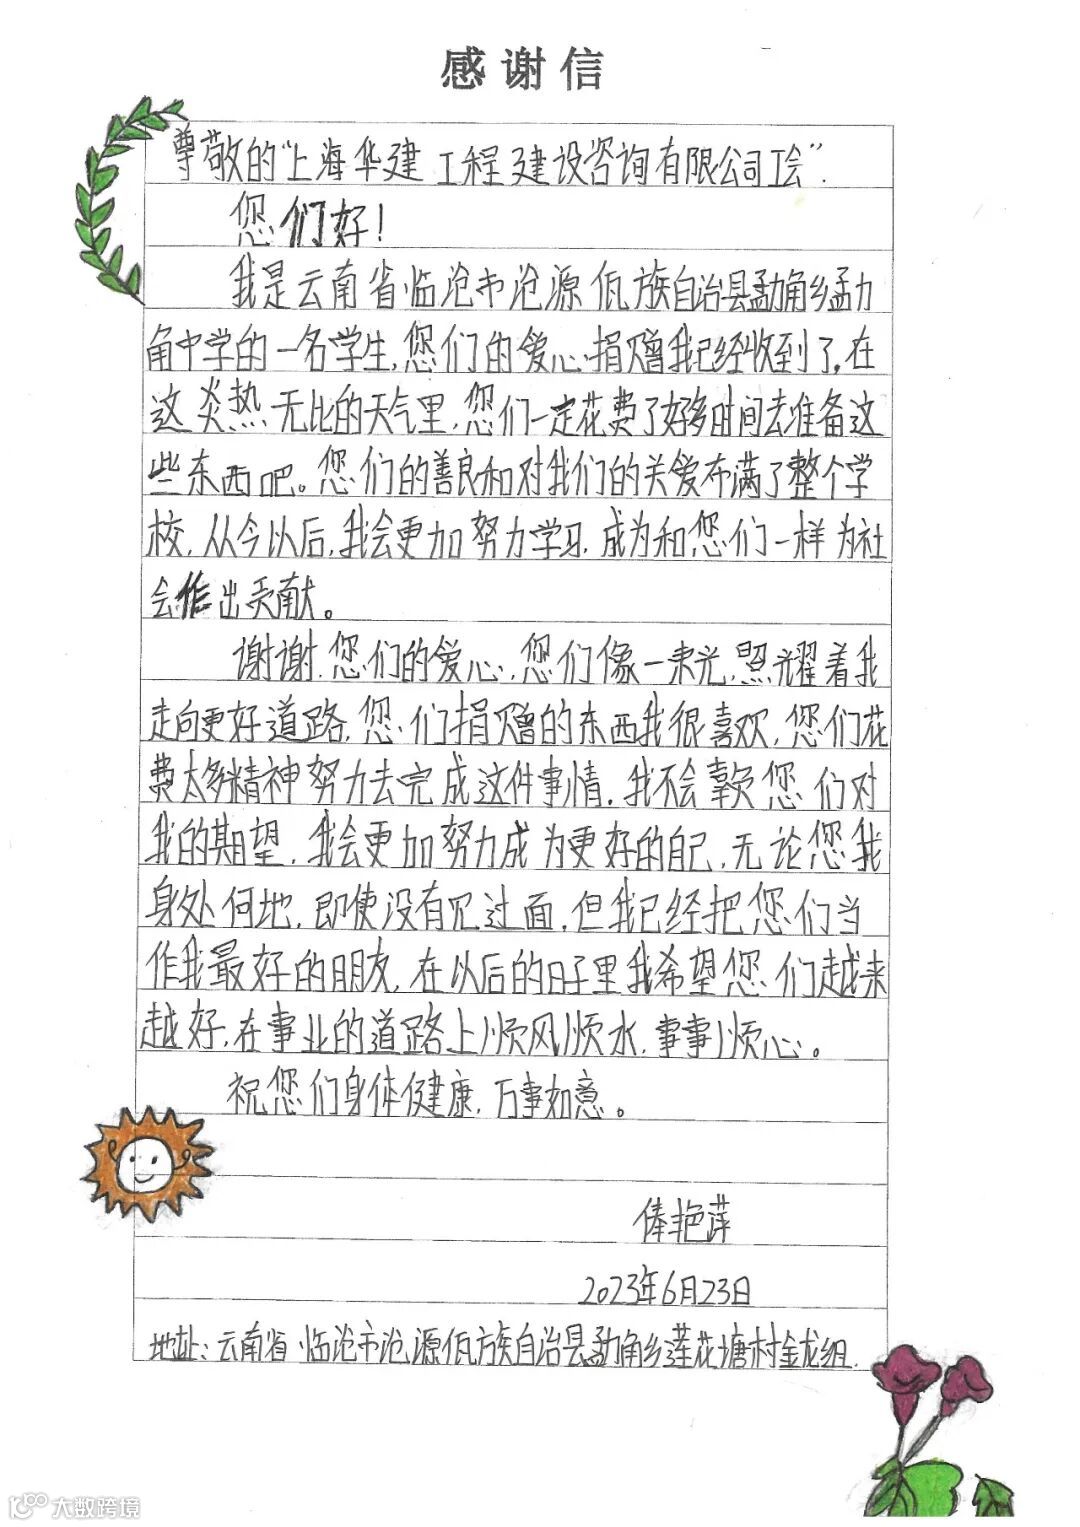 感谢信
尊敬的“上海华建工程建设咨询有限公司工会”:
您们好!
我是云南省临沧市沧源佤族自治县勐角乡勐
角中学的一名学生,您们的爱心捐赠我已经收到了。在
这炎热无比的天气里,您们一定花费了好多时间去准备这
些东西吧。您们的善良和对我们的关爱布满了整个学
校,从今以后,我会更加努力学习,成为和您们一样为社
会作出贡献。
谢谢,您们的爱心,您们像一束光,照耀着我
走向更好道路,您们捐赠的东西我很喜欢,您们花
费太多精神努力去完成这件事情,我不会辜负您们对
我的期望,我会更加努力成为更好的自己,无论您我
身处何地,即使没有见过面,但我已经把您们当
作我最好的朋友,在以后的日子里我希望您们越来
越好,在事业的道路上顺风顺水,事事顺心。
祝您们身体健康,万事如意。
俸艳萍
2023年6月23日
地址:云南省临沧市沧源佤族自治县勐角乡莲花塘村金龙组.
大数跨境